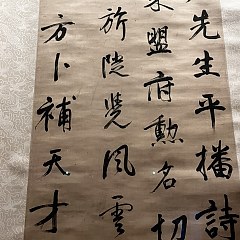 先生平播詩
盟府勳名切
旂陡覺風雲
方卜補天才